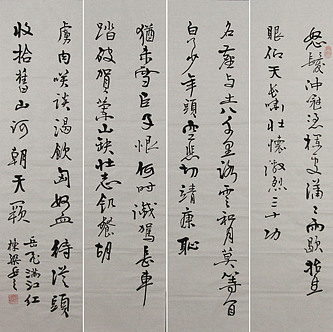 怒髮沖冠憑欄處瀟瀟雨歇抬望
眼仰天長嘯壯懷激烈三十功
名塵與土八千里路雲和月莫等閒
白了少年頭空悲切靖康恥
猶未雪臣子恨何時滅駕長車
踏破賀蘭山缺壯志飢餐胡
虜肉笑談渴飲匈奴血待從頭
收拾舊山河朝天闕
岳飛滿江紅